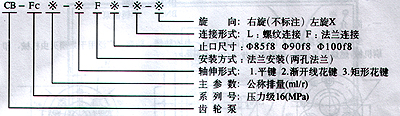 CB-Fc※-※F※-※-※
旋 向: 右旋(不标注) 左旋X
连接形式: L:螺纹连接 F:法兰连接
止口尺寸: Φ85f8 Φ90f8 Φ100f8
安装方式: 法兰安装(两孔法兰)
轴伸形式: 1.平键 2.渐开线花键 3.矩形花键
主 参 数: 公称排量(ml/r)
系 列 号: 压力级16(MPa)
齿 轮 泵